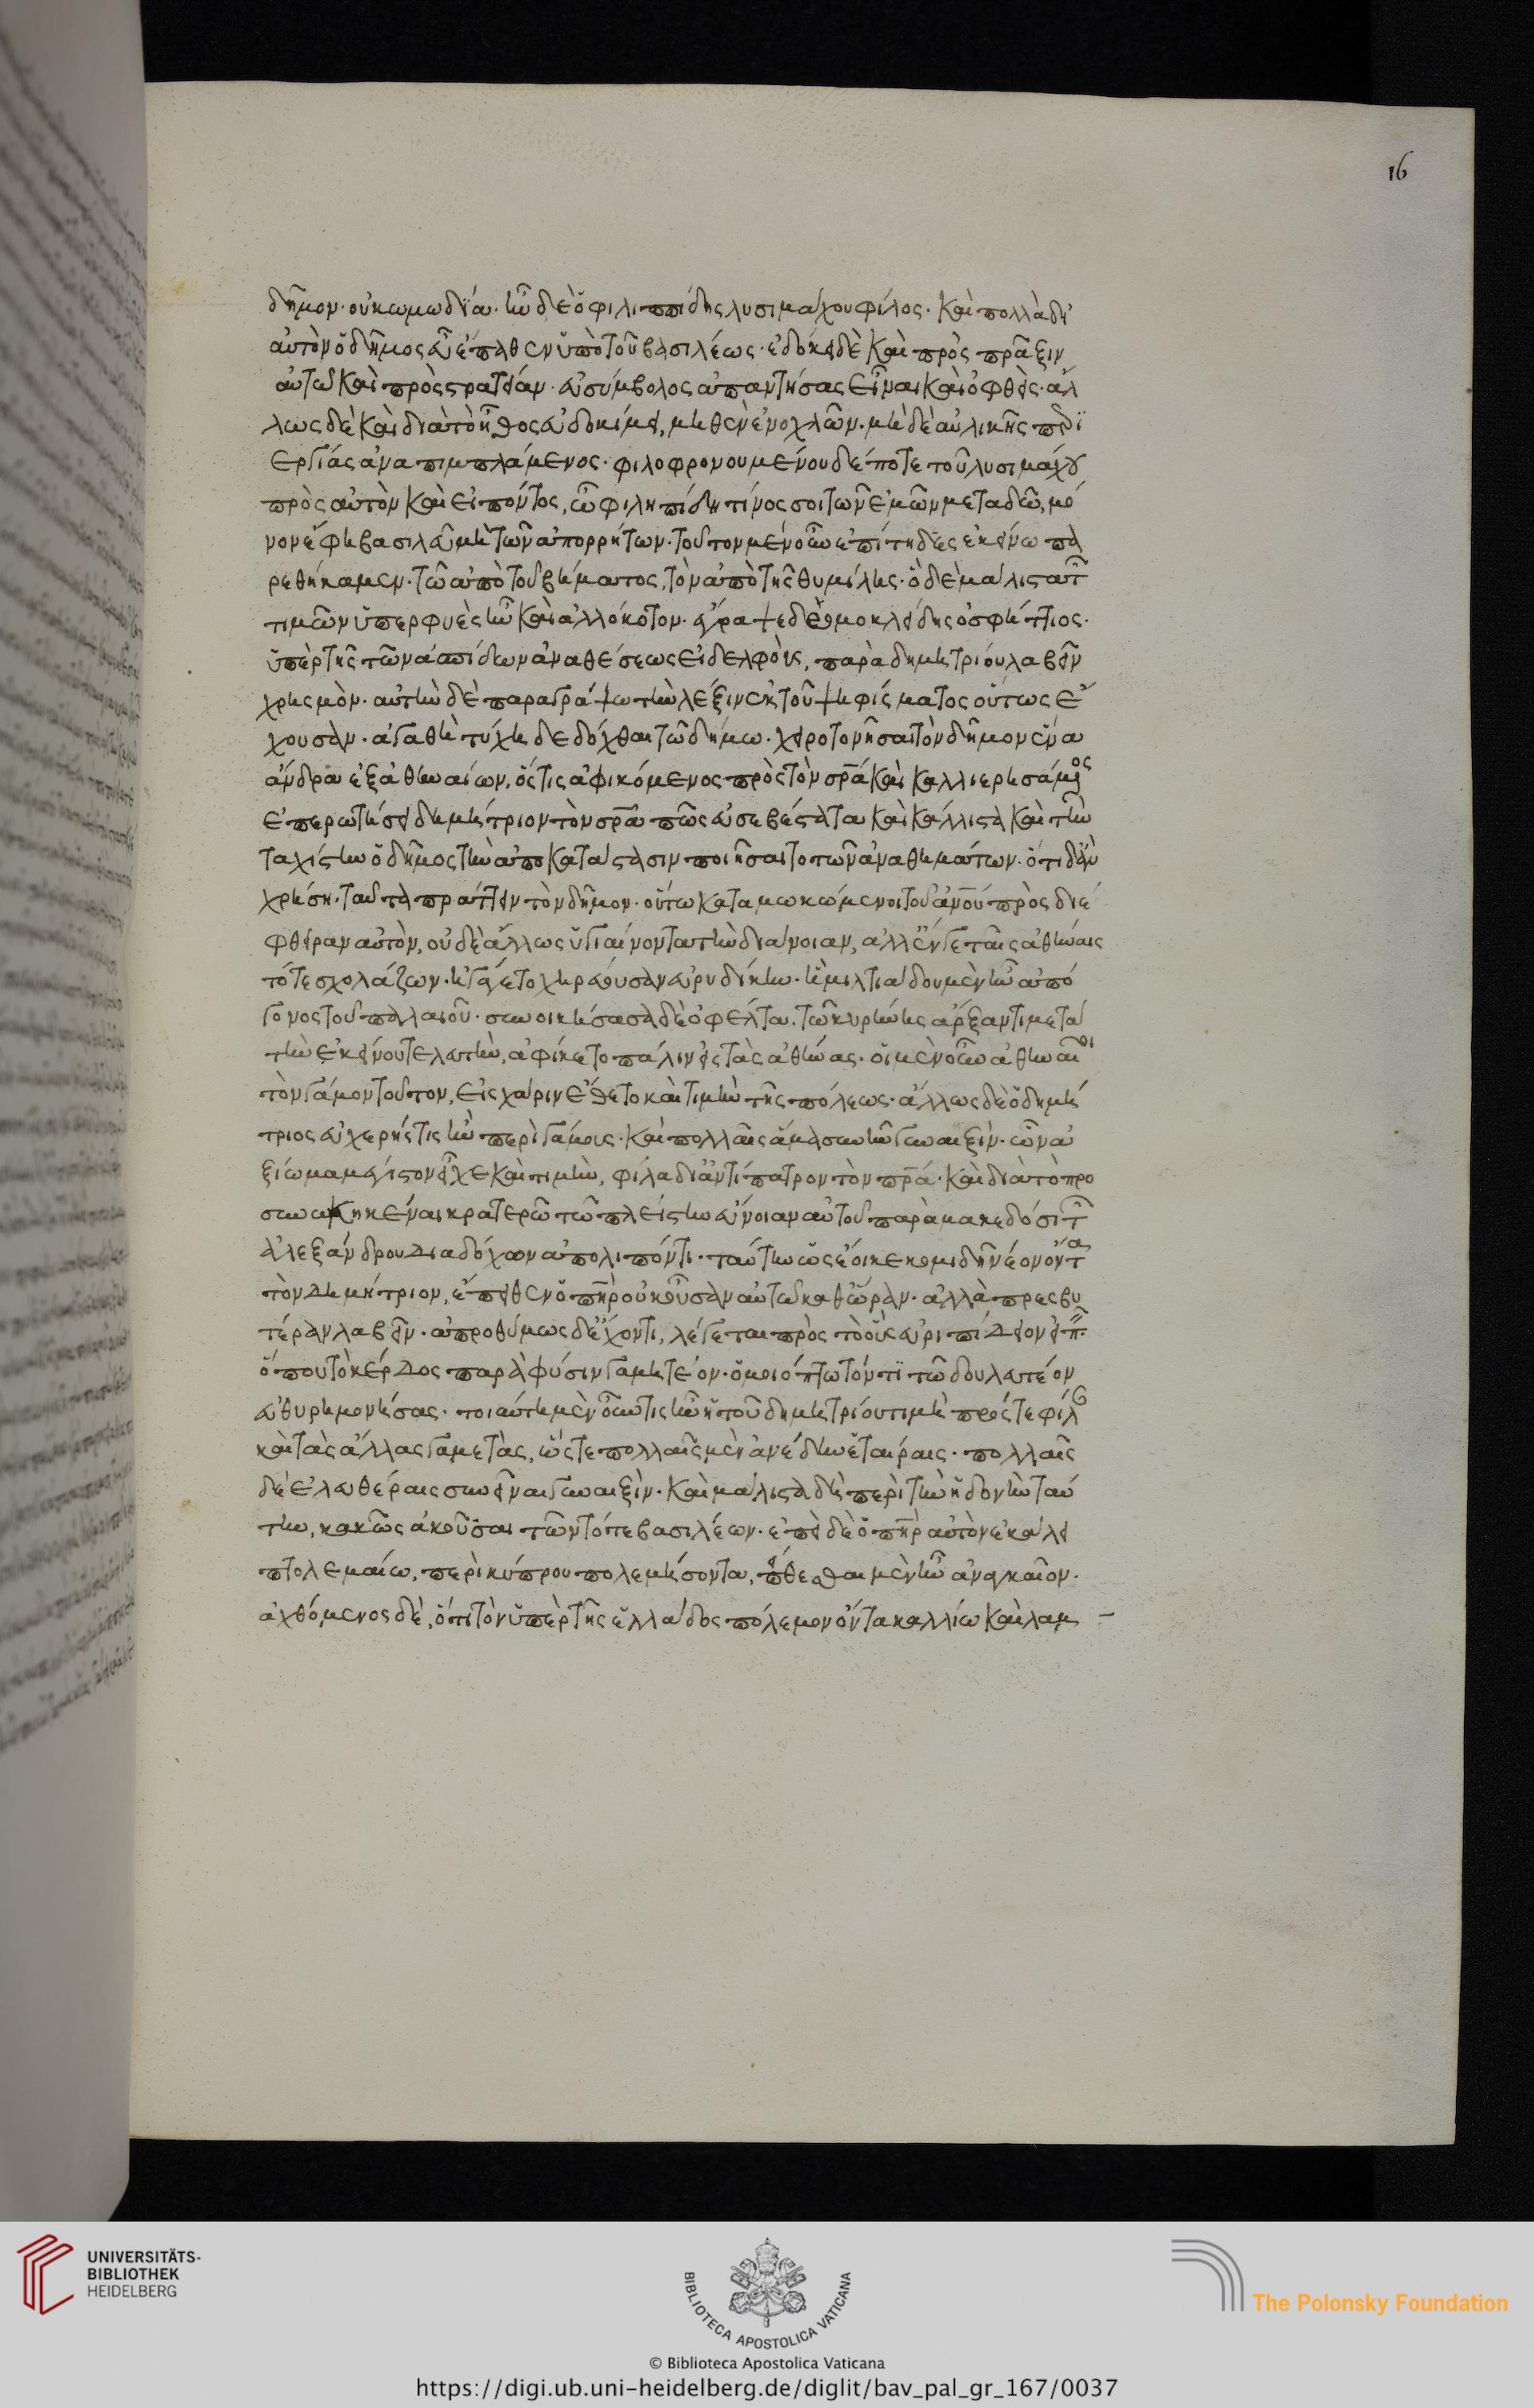 16
δῆμον· οὐ κωμωδΐα· ἦν δὲ ὁ φιλιππίδης λυσιμάχου φίλος· καὶ πολλὰ δι'
αὐτὸν ὁ δῆμος εὖ ἔπαθεν ὑπὸ τοῦ βασιλέως· ἐδόκει δὲ καὶ πρὸς πρᾶξιν
αὐτῶ καὶ πρὸς στρατείαν· εὐσύμβολος ἀπαντήσας εἶναι καὶ ὀφθείς· ἀλ
λως δὲ καὶ διὰ τὸ ἦθος εὐδοκίμει, μηθὲν ἐνοχλῶν· μὴ δὲ αὐλικῆς περϊ
εργίας ἀναπιμπλάμενος· φιλοφρονουμένου δέ ποτε τοῦ λυσιμάχου
πρὸς αὐτὸν καὶ εἰπόντος, ὦ φιλιπίδη τίνος σοι τῶν ἐμῶν μεταδῶ, μό
νον ἔφη βασιλεῦ μὴ τῶν ἀπορρήτων· τοῦτον μὲν οὖν ἐπίτηδες ἐκείνω πα
ρεθήκαμεν· τῶ ἀπὸ τοῦ βήματος, τὸν ἀπὸ τῆς θυμέλης· ὁ δὲ μάλιστα τῶν
τιμῶν ὑπερφυὲς ἦν καὶ ἀλλόκοτον· ἔγραψε δρομοκλείδης ὁ σφήττιος·
ὑπὲρ τῆς τῶν ἀσπίδων ἀναθέσεως εἰ δελφοὺς, παρὰ δημητρίου λαβεῖν
χρησμὸν· αὐτὴν δὲ παραγράψω τὴν λέξιν ἐκ τοῦ ψηφίσματος οὕτως ἔ
χουσαν· ἀγαθῆ τύχη δεδόχθαι τῶ δήμω· χειροτονῆσαι τὸν δῆμον ἕνα
ἄνδρα ἐξ ἀθηναίων, ὅστις ἀφικόμενος πρὸς τὸν σρ̅α καὶ καλλιερησάμενος
ἐπερωτήσει δημήτριον τὸν σρ̅α πῶς εὐσεβέστατα καὶ κάλλιστα καὶ τὴν
ταχίστην ὁ δῆμος τὴν ἀποκατάστασιν ποιήσαιτο τῶν ἀναθημάτων· ὅτι δ' ἂν
χρήση· ταῦτα πράττειν τὸν δῆμον· οὕτω καταμωκώμενοι τοῦ ἀν̅ου προσδιέ
φθειραν αὐτὸν, οὐδὲ ἄλλως ὑγιαίνοντα τὴν διάνοιαν, ἀλλ' ἔν γε ταῖς ἀθήναις
τότε σχολάζων· ἠγάγετο χηρεύουσαν εὐρυδίκην· ἣ μιλτιάδου μὲν ἦν ἀπό
γονος τοῦ παλαιοῦ· συνοικήσασα δὲ ὀφέλτα· τῶ κυρήνης ἄρξαντι μετὰ
τὴν ἐκείνου τελευτὴν, ἀφίκετο πάλιν εἰς τὰς ἀθήνας· οἱ μὲν οὖν ἀθηναῖοι
τὸν γάμον τοῦτον, εἰς χάριν ἔθετο καὶ τιμὴν τῆς πόλεως· ἄλλως δὲ ὁ δημή
τριος εὐχερής τις ἦν περὶ γάμους· καὶ πολλαῖς ἅμα συνῆν γυναιξὶν· ὧν ἀ
ξίωμα μέγιστον εἶχε καὶ τιμὴν, φίλα δι' ἀντίπατρον τὸν πρ̅α· καὶ διὰ τὸ προ
συνωκηκέναι κρατερῶ τῶ πλείστην εὔνοιαν αὐτοῦ παρὰ μακεδόσι τῶν
ἀλεξάνδρου διαδόχων ἀπολιπόντι· ταύτην ὡς ἔοικε κομιδῆ νέον ὄντα
τὸν δημήτριον, ἔπειθεν ὁ πη̅ρ οὐκ οὖσαν αὐτῶ καθ' ὥραν· ἀλλὰ πρεσβυ
τέραν λαβεῖν· ἀπροθύμως δ' ἔχοντι, λέγεται πρὸς τὸ οὖς εὐριπίδειον εἰπεῖν·
ὅπου τὸ κέρδος παρὰ φύσιν γαμητέον· ὁμοιόπτωτόν τϊ τῶ δουλευτέον
εὐθυρημονήσας· τοιαύτη μὲν οὖν τις ἦν ἡ τοῦ δημητρίου τιμὴ πρός τε φίλαν
καὶ τὰς ἄλλας γαμετὰς, ὥστε πολλαῖς μὲν ἀνέδην ἑταίραις· πολλαῖς
δὲ ἐλευθέραις συνεῖναι γυναιξὶν· καὶ μάλιστα δὴ περὶ τὴν ἡδονὴν ταύ
την, κακῶς ἀκοῦσαι τῶν τότε βασιλέων· ἐπεὶ δὲ ὁ πη̅ρ αὐτὸν ἐκάλει
πτολεμαίω, περὶ κύπρου πολεμήσοντα, πείθεσθαι μὲν ἦν ἀναγκαῖον·
ἀχθόμενος δὲ, ὅτι τὸν ὑπὲρ τῆς ἑλλάδος πόλεμον ὄντα καλλίω καὶ λαμ –
UNIVERSITÄTS-
BIBLIOTHEK
HEIDELBERG
BIBLIOTECA APOSTOLICA VATICANA
The Polonsky Foundation
© Biblioteca Apostolica Vaticana
https://digi.ub.uni-heidelberg.de/diglit/bav_pal_gr_167/0037